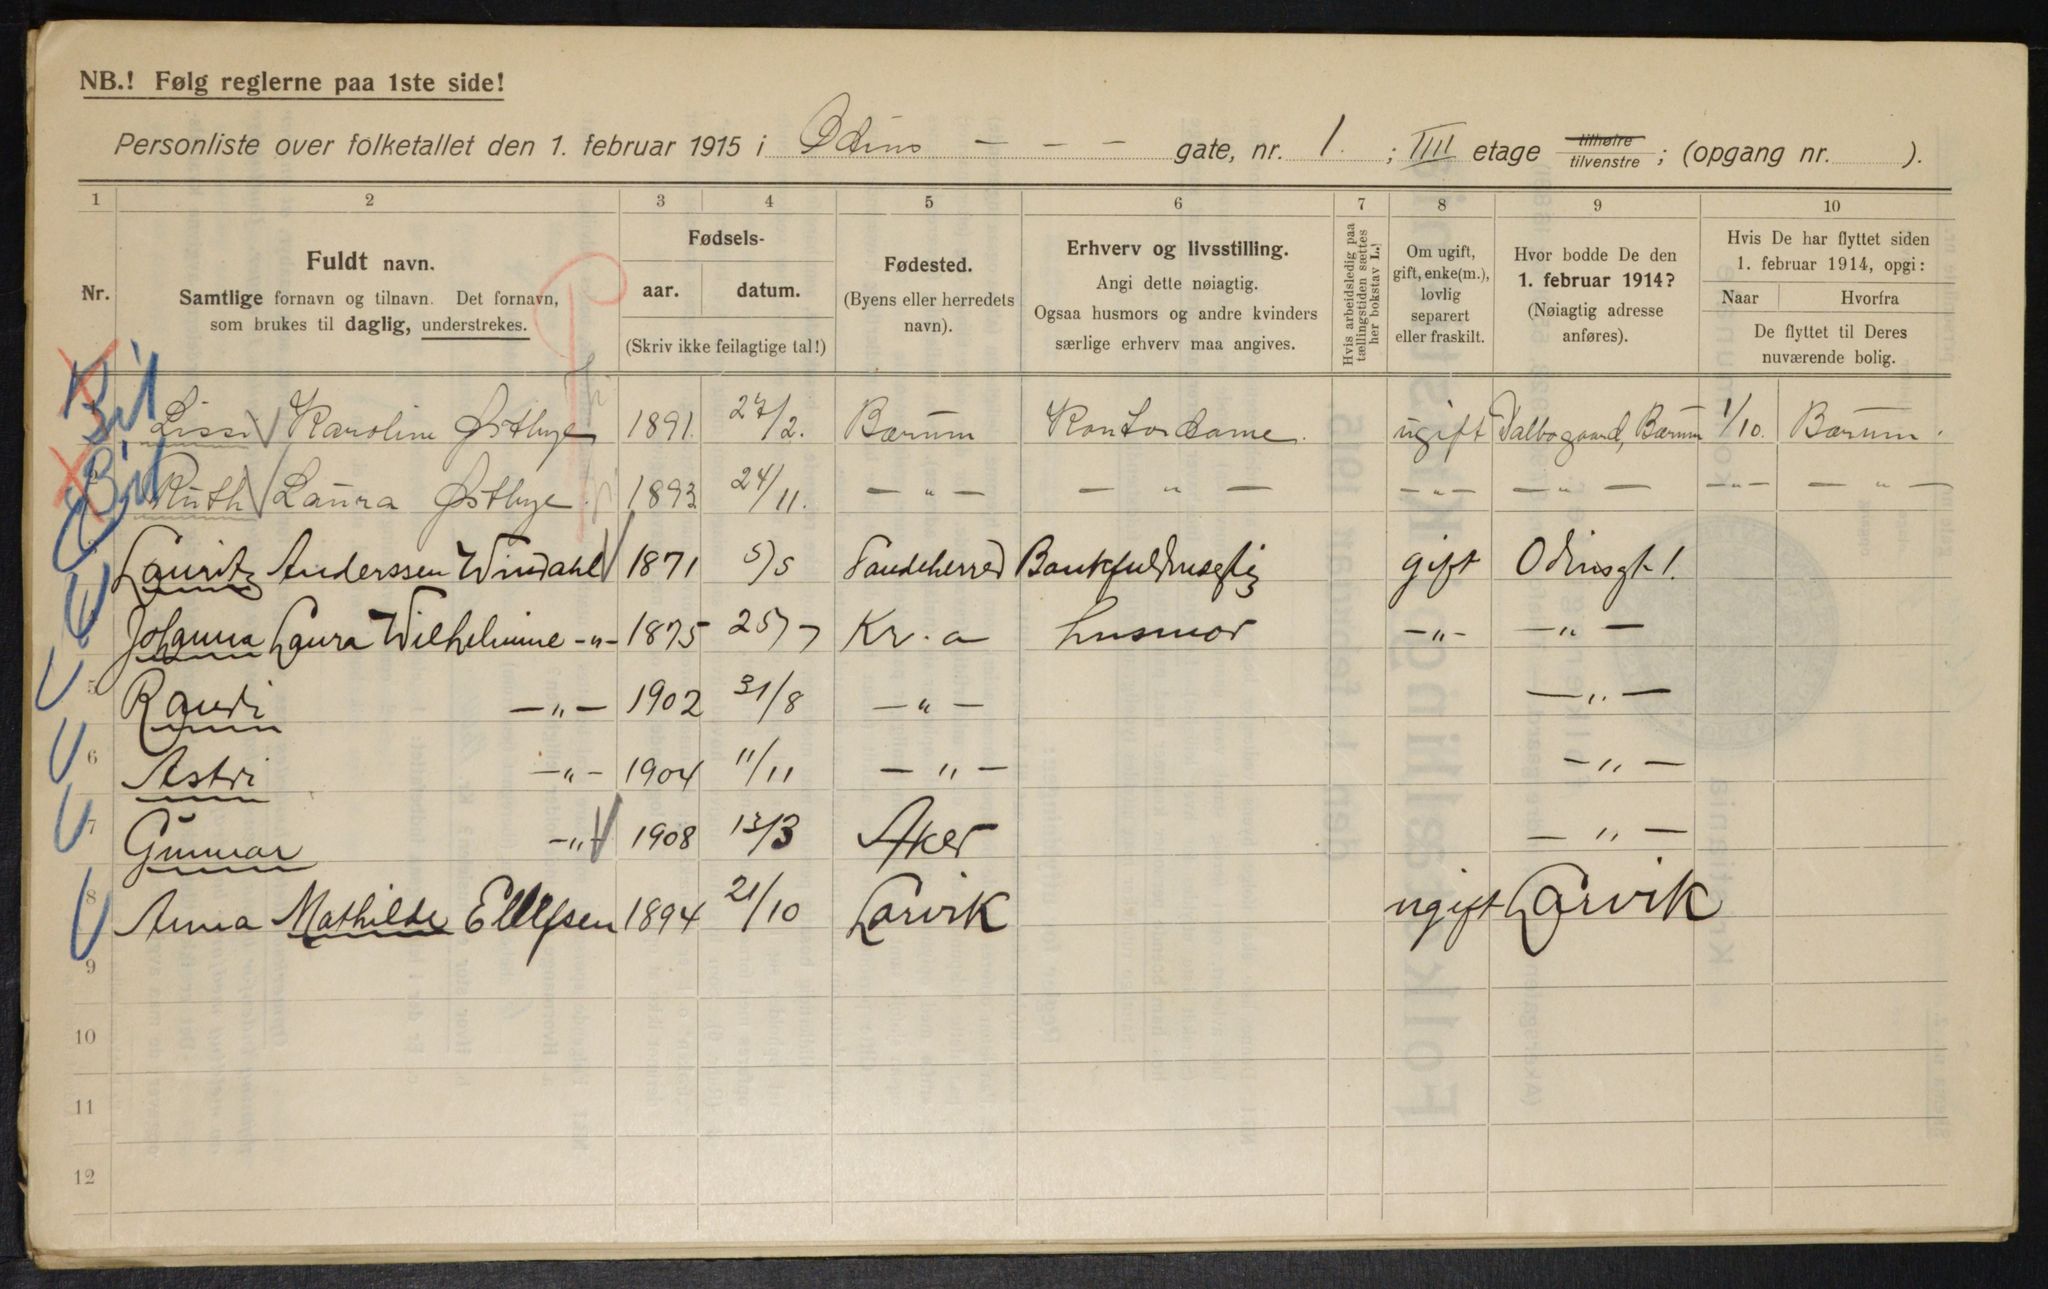 NB.! Følg reglerne paa 1ste side!
Personliste over folketallet den 1. februar 1915 i Odins - - - gate, nr. 1. ; IIII etage tilhøire/tilvenstre ; (opgang nr. ).
1 2 3 4 5 6 7 8 9 10
Nr.
Fuldt navn.
Samtlige fornavn og tilnavn. Det fornavn,
som brukes til daglig, understrekes.
Fødsels-
aar. datum.
(Skriv ikke feilagtige tal!)
Fødested.
(Byens eller herredets
navn).
Erhverv og livsstilling.
Angi dette nøiagtig.
Ogsaa husmors og andre kvinders
særlige erhverv maa angives.
Hvis arbeidsledig paa
tællingstiden sættes
her bokstav L.!
Om ugift,
gift, enke(m.),
lovlig
separert
eller fraskilt.
Hvor bodde De den
1. februar 1914?
(Nøiagtig adresse
anføres).
Hvis De har flyttet siden
1. februar 1914, opgi:
Naar Hvorfra
De flyttet til Deres
nuværende bolig.
Bil Lissi Karoline Østbye 1891. 27/2. Bærum Kontordame. ugift Valbogaard, Bærum 1/10. Bærum.
Bil Ruth Laura Østbye 1893 24/11. - " - - " - - " - - " - - " - - " -
Lauritz Anderssen Windahl 1871 5/5 Sandeherred Bankfuldmægtig gift Odinsgt 1.
Johanna Laura Wilhelmine - " - 1875 25/7 Kr.a husmor - " - - " -
5 Randi - " - 1902 31/8 - " - - " -
6 Astri - " - 1904 11/11 - " - - " -
7 Gunnar - " - 1908 13/3 Aker - " -
8 Anna Mathilde Ellefsen 1894 21/10 Larvik ugift Larvik
9
10
11
12